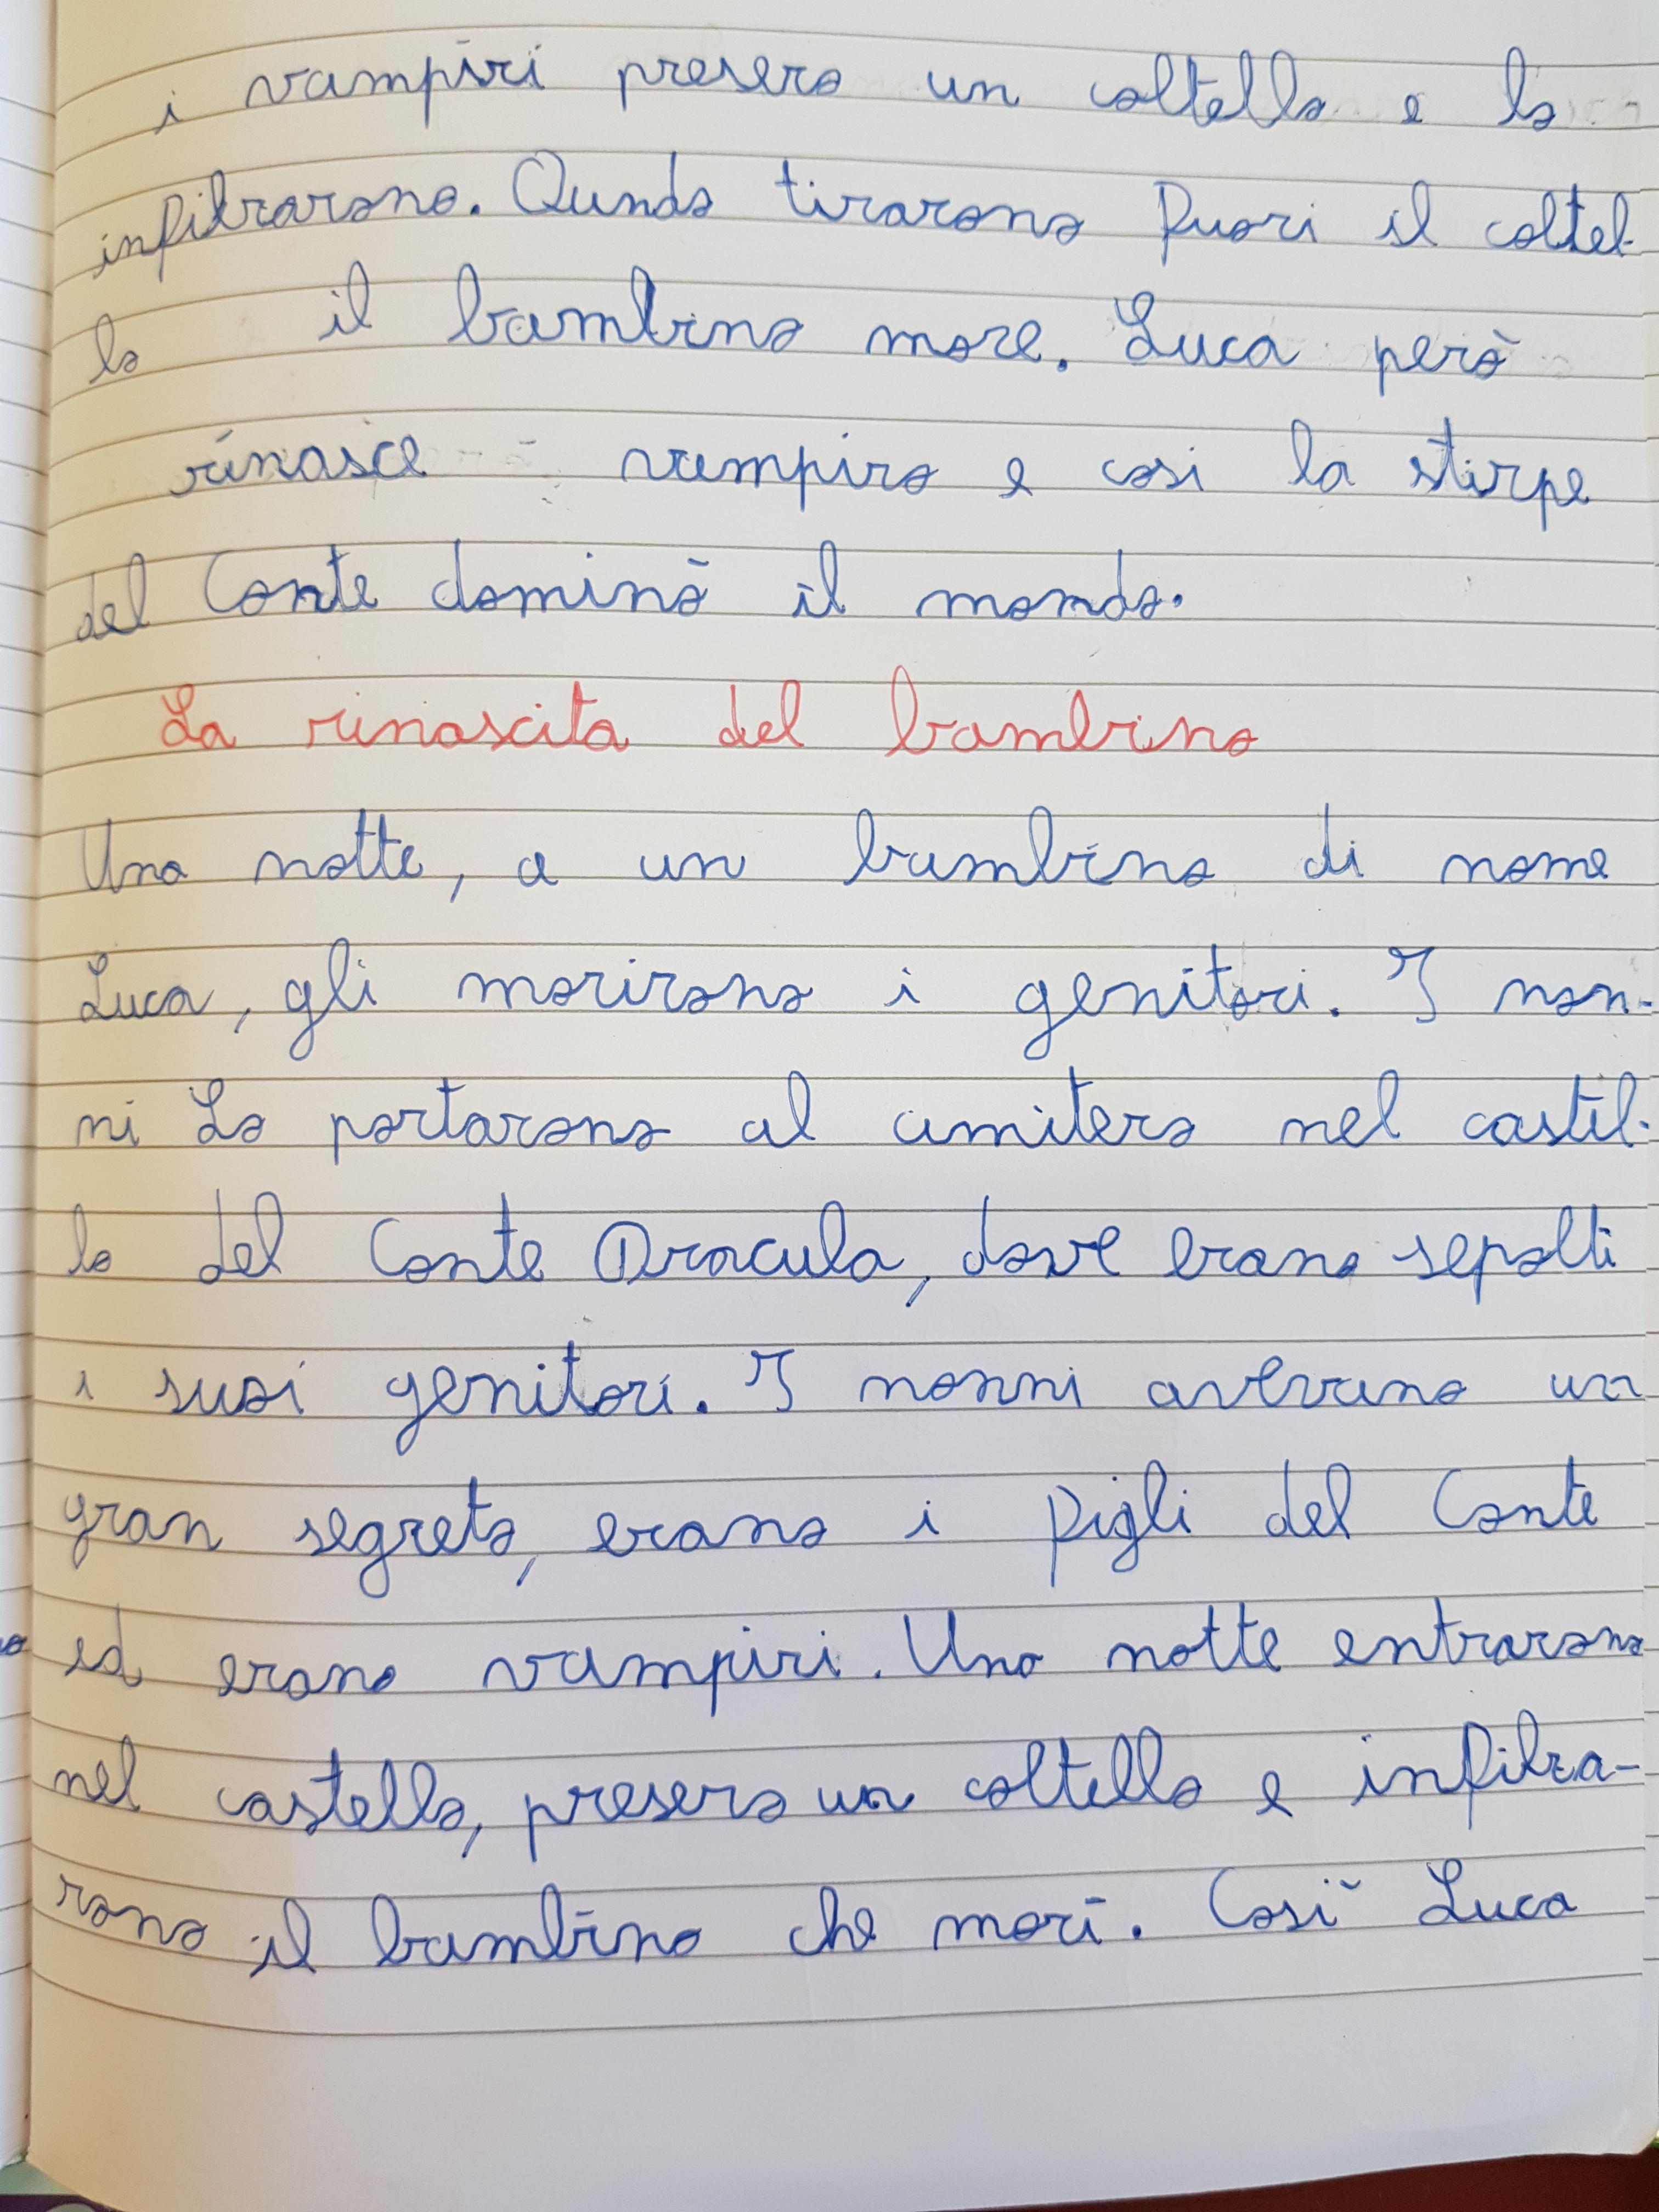 i vampiri presero un coltello e lo
infilzarono. Qundo tirarono fuori il coltel-
lo il bambino more. Luca però
rinasce vampiro e cosi la stirpe
del Conte dominò il mondo.
La rinascita del bambino
Una notte, a un bambino di nome
Luca, gli morirono i genitori. I non-
ni Lo portarono al cimitero nel castel-
lo del Conte Dracula, dove erano sepolti
i suoi genitori. I nonni avevano un
gran segreto, erano i figli del Conte
ed erano vampiri. Una notte entrarono
nel castello, presero un coltello e infilza-
rono il bambino che morì. Così Luca